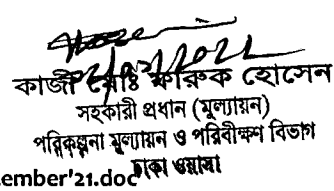 কাজী মোঃ ফারুক হোসেন
সহকারী প্রধান (মূল্যায়ন)
পরিকল্পনা মূল্যায়ন ও পরিবীক্ষণ বিভাগ
ঢাকা ওয়াসা
ember'21.doc